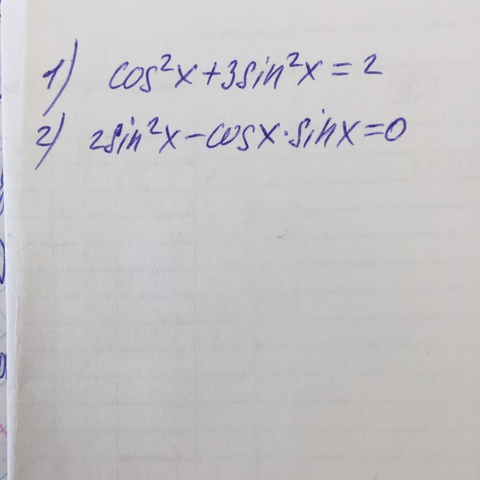 1) cos²x+3sin²x=2
2) 2sin²x-cosx·sinx=0